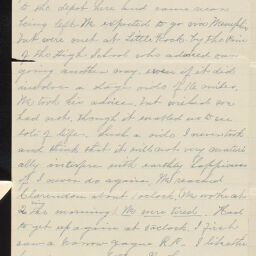 to the depot here and came near
being left. We expected to go via Memphis
but were met at Little Rock by the Prin
of the High School who advised our
going another way, even if it did
involve a stage ride of 16 miles.
We took his advice, but wished we
had not, though it enabled us to see
lots of life. Such a ride I never took
and think that it will not very materi
ally interfere with earthly happiness
if I never do again. We reached
Clarendon about 1 o'clock. We woke at
2 in the morning! We were tired. Had
to get up again at 5 o'clock. I first
saw a narrow gauge R.R. I